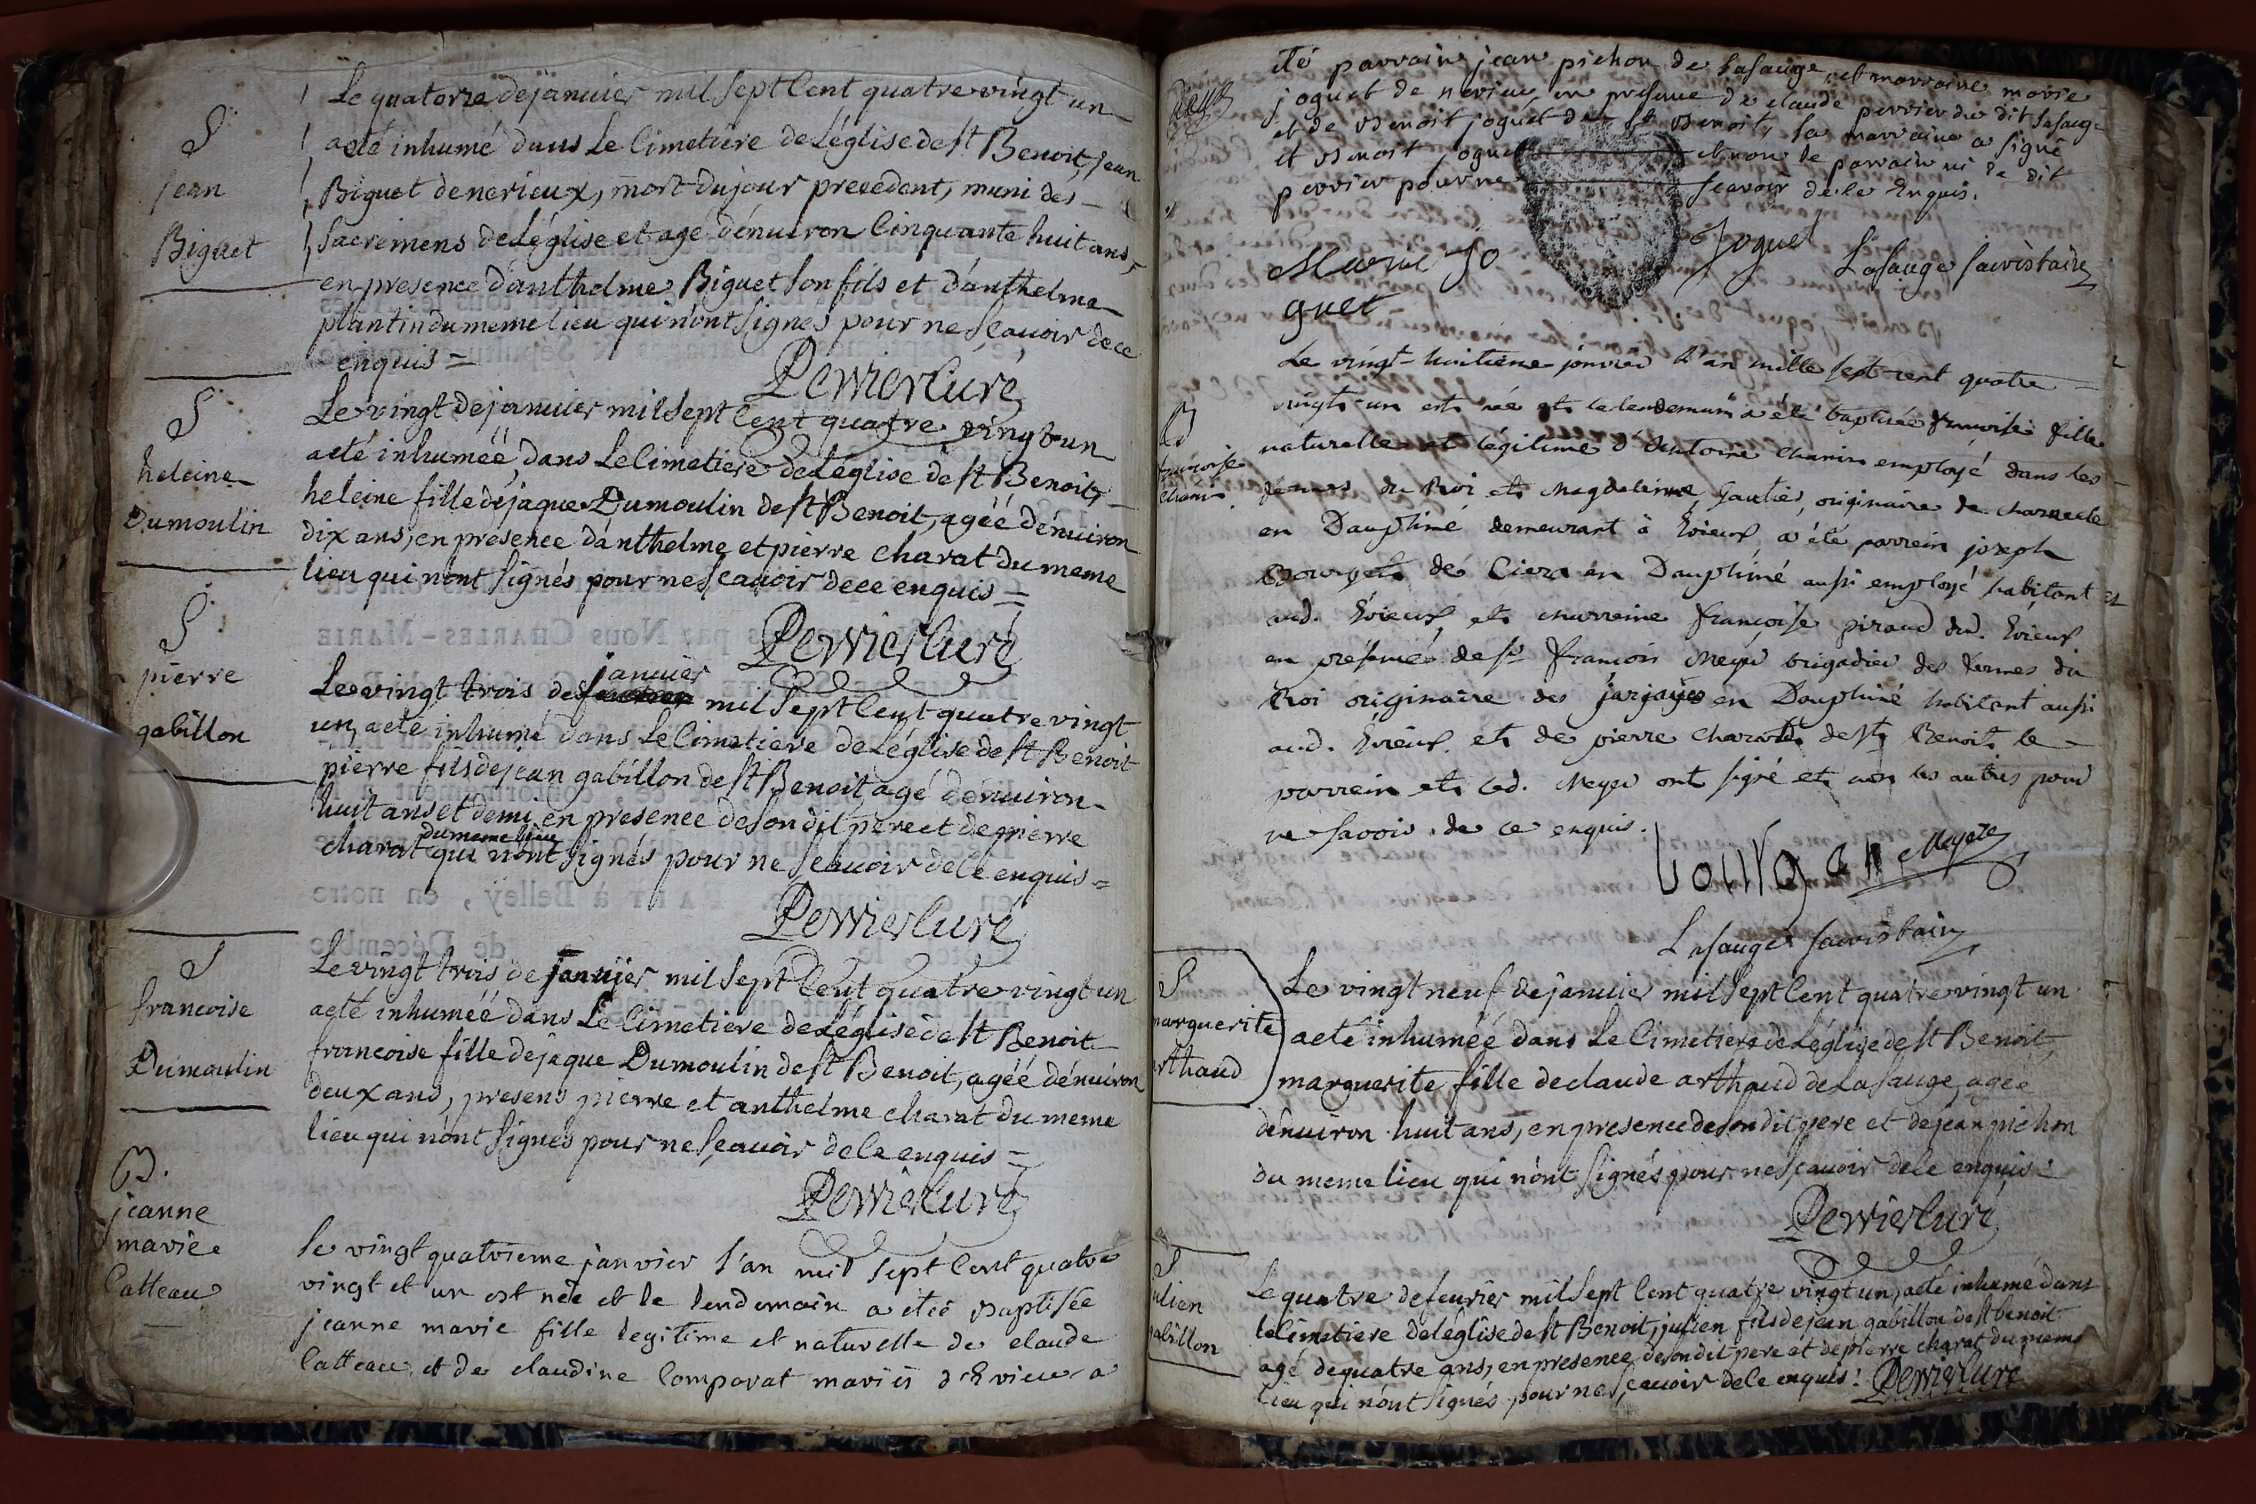 S
jean
Biguet
Le quatorze de janvier mil sept Cent quatre vingt un
a eté inhumé dans Le Cimetiere de Léglise de st Benoit, jean
Biguet de nerieux, mort du jour precedent, muni des
sacremens de Léglise et agé dénuiron Cinquante huit ans,
en presence dánthelme Biguet son fils et dánthelme
plantin du meme lieu qui nónt signés pour ne sçauoir de ce
enquis =
Perrier Curé
S
heleine
Dumoulin
Le vingt de januier mil sept Cent quatre vingt un
a eté inhuméé, dans Le Cimetiere de Léglise de st Benoit,
heleine fille déjaque Dumoulin de st Benoit, agéé dénuiron
dix ans, en presence dánthelme et pierre charat du meme
lieu qui nont signés pour ne sçauoir de ce enquis =
Perrier Curé
S
pierre
gabillon
januier
Le vingt trois de mil sept Cent quatre vingt
un, a eté inhumé dans Le Cimetiere de Léglise de st Benoit
pierre fils de jean gabillon de st Benoit agé dénuiron
huit ans et demi en presence de son dit pere et de pierre
du meme lieu
charat qui nónt signés pour ne sçauoir de ce enquis =
Perrier Curé
S
francoise
Dumoulin
Le vingt trois de januier mil sept Cent quatre vingt un
a eté inhuméé dans Le Cimetiere de Léglise de st Benoit
francoise fille de jaque Dumoulin de st Benoit, agéé dénuiron
deux ans, presens pierre et anthelme charat du meme
lieu qui nónt signés pour ne sçauoir de ce enquis =
Perrier Curé
B.
jeanne
marie
Catteau
le vingt quatrieme janvier l'an mil sept Cent quatre
vingt et un est née et le lendemain a eté Baptisée
jeanne marie fille legitime et naturelle de claude
Catteau et de claudine Comparat mariés d'Evieu a
été parrain jean pichon de lasauge, et marraine marie
joguet de nerieu, en presence de claude perrier du dit lasauge
et de Benoit joguet de st Benoit, la marraine a signé
et Benoit joguet et non le parrain ni le dit
perrier pour ne scavoir de ce Enquis.
Marie Jo
guet
Joguet
Lasauge sacristain
B
francoise
chanin
Le vingt-huitieme janvier l'an mille sept cent quatre
vingt-un est née et le lendemain a été baptisée francoise fille
naturelle et légitime d'Antoine chanin employé dans les
fermes du Roi et Magdeleine Gautier, originaire de charnecle
en Dauphiné demeurant à Evieux a été parrein joseph
Bourgeat de Ciers en Dauphiné aussi employé habitant
aud. Evieux et marreine françoise piraud dud. Evieux
en présence de sr francois Meyer brigadier des fermes du
Roi originaire des jarjayes en Dauphiné habitant aussi
aud. Evieux et de pierre charat de st Benoit le
parrein et led. Meyer ont signé et non les autres pour
ne savoir de ce enquis.
Meyere
Lasauge sacristain
S
marguerite
arthaud
Le vingt neuf de januier mil sept Cent quatre vingt un
a eté inhuméé dans Le Cimetiere de Léglise de st Benoit,
marguerite fille de claude arthaud de La sauge, agée
dénuiron huit ans, en presence de son dit pere et de jean pichon
du meme lieu qui nónt signés pour ne sçauoir de ce enquis :
Perrier Curé
S
julien
gabillon
Le quatre de feurier mil sept Cent quatre vingt un, a eté inhumé dans
le Cimetiere de léglise de st Benoit, julien fils de jean gabillon de st benoit
agé de quatre ans, en presence de son dit pere et de pierre charat du meme
lieu qui nónt signés pour ne sçauoir de ce enquis : Perrier Curé